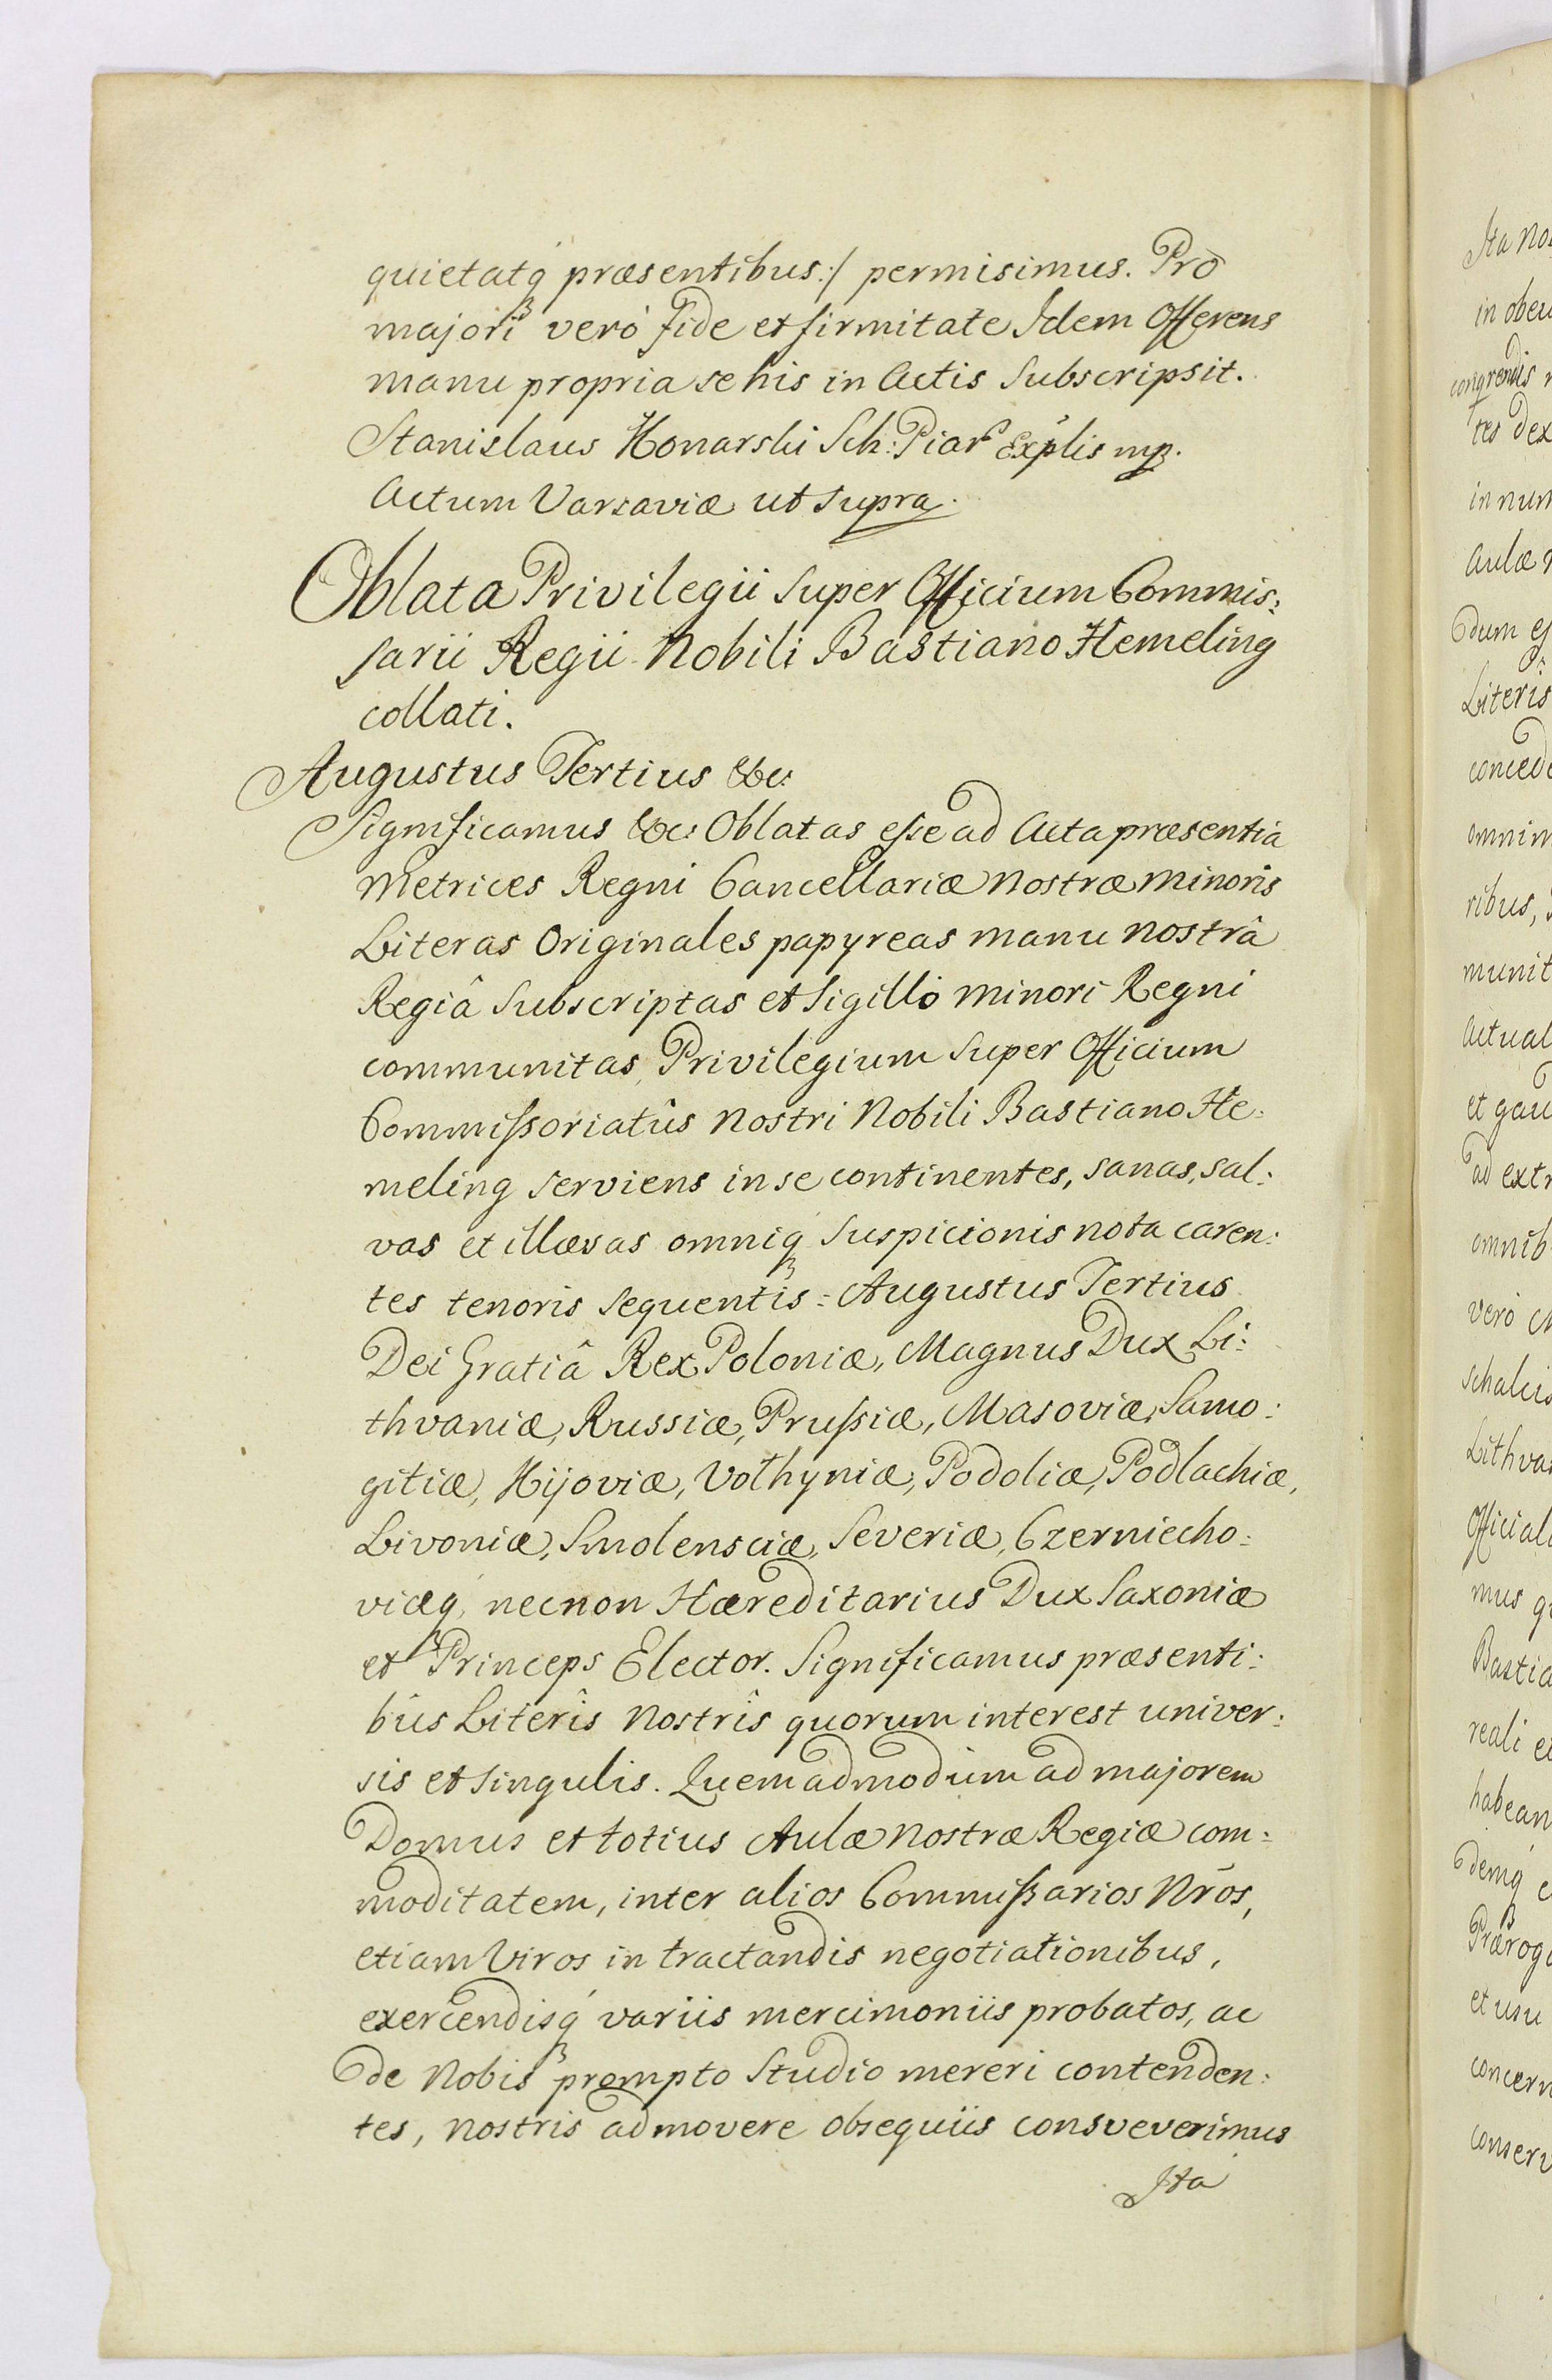 quietatq́ præsentibus:/ permisimus. Pro
majori verò fide et firmitate Idem Offerens
manu propria se his in Actis Subscripsit.
Stanislaus Konarski Sch: Piar Explis mp.
Actum Varsaviæ ut supra.
Oblata Privilegii Super Officium Commis:
sarii Regii Nobili Bastiano Hemeling
collati.
Augustus Tertius &c:
Significamus &c: Oblatas esse ad Acta præsentia
Metrices Regni Cancellariæ Nostræ Minoris
Literas Originales papyreas manu Nostrâ
Regiâ Subscriptas et Sigillo Minori Regni
communitas, Privilegium Super Officium
Commissoriatûs Nostri Nobili Bastiano He:
meling serviens in se continentes, sanas, sal:
vas et illæsas omniq́ Suspicionis nota caren:
tes tenoris sequentis: Augustus Tertius
Dei Gratiâ Rex Poloniæ, Magnus Dux Li:
thvaniæ, Russiæ, Prussiæ, Masoviæ, Samo:
gitiæ, Kijoviæ, Volhyniæ, Podoliæ, Podlachiæ,
Livoniæ, Smolensciæ, Severiæ, Czerniecho:
viæq́, necnon Hæreditarius Dux Saxoniæ
et Princeps Elector. Significamus præsenti:
bûs Literîs Nostrîs quorum interest univer:
sis et singulis. Quemadmodum ad majorem
Domus et totius Aulæ Nostræ Regiæ com:
moditatem, inter alios Commissarios Nr̃os,
etiam Viros in tractandis negotiationibus,
exercendisq́ variis mercimoniis probatos, ac
de Nobis prompto Studio mereri contenden:
tes, Nostris admovere obsequiis consveverimus
Ita
Ita Nos
in obeu
congrendis
tes dex
in num
Aulæ
dum es
Literis
conced
omnim
ribus,
munit
Actual
et gau
ad extr
omnib
verò M
schalcis
Lithva
Official
mus q
Bastia
reali e
habean
demq́
Prærog
et usu
concern
conserv